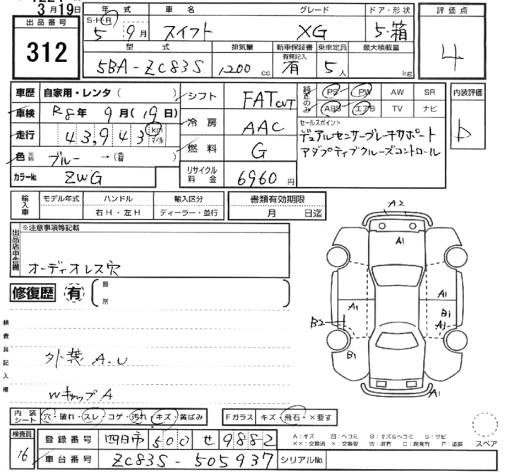 3月19日
出品番号 年式 車名 グレード ドア・形状 評価点
S・H・R 5年 9月 スイフト XG 5・箱 4
312
型式 排気量 新車保証書 乗車定員 最大積載量
有無記入
5BA-ZC83S 1200 cc 有 5人 kg
車歴 自家用・レンタ( ) シフト FAT CVT 装備のみ PS PW AW SR 内装評価
車検 R8年 9月(19日) ABS エアB TV ナビ
冷房 AAC セールスポイント
走行 43,943 km マイル デュアルセンサーブレーキサポート
アダプティブクルーズコントロール
色 ブルー→( ) 燃料 G
カラーNo. ZWG リサイクル料金 6960円
輸入車 モデル年式 ハンドル 輸入区分 書類有効期限
右H・左H ディーラー・並行 月 日迄
出品店申告欄 ※注意事項等記載
オーディオレス穴
修復歴 有 ( 箇所 )
A2
A1
A1 A1
B2 A1
B1 B1
A1
検査員記入欄
外装 A.U
WキャップA
内装シート 穴・破れ・スレ・コゲ・汚れ・キズ・黄ばみ Fガラス キズ・飛石・×要す
検査員 登録番号 四日市 500 せ 9882
A:キズ U:ヘコミ B:キズ&ヘコミ S:サビ
スペア
16 車台番号 ZC83S-505937 シリアルNo.